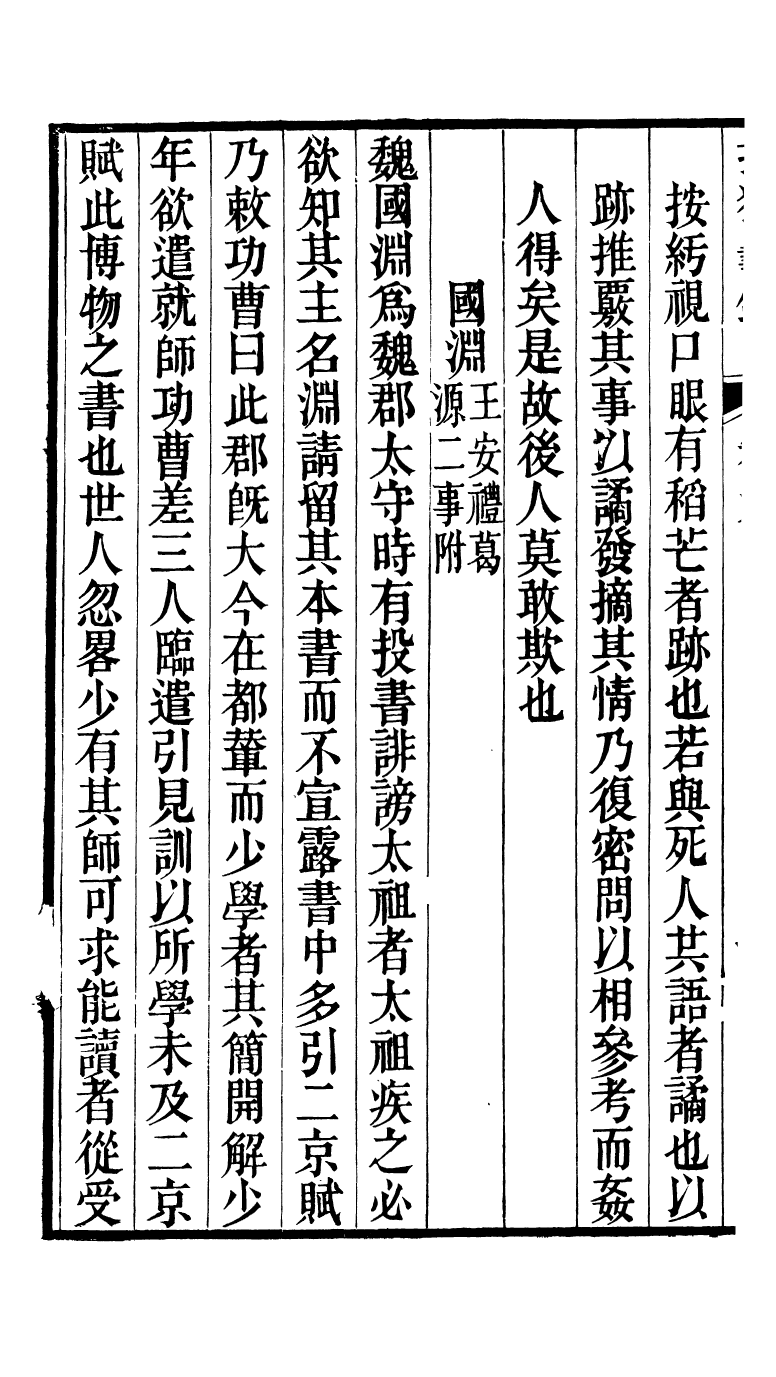 按紆視口眼有稻芒者跡也若與死人共語者譎也以
跡推覈其事以譎發摘其情乃復密問以相參考而姦
人得矣是故後人莫敢欺也
國淵王安禮葛
源二事附
魏國淵爲魏郡太守時有投書誹謗太祖者太祖疾之必
欲知其主名淵請留其本書而不宣露書中多引二京賦
乃敕功曹曰此郡旣大今在都輦而少學者其簡開解少
年欲遣就師功曹差三人臨遣引見訓以所學未及二京
賦此博物之書也世人忽畧少有其師可求能讀者從受